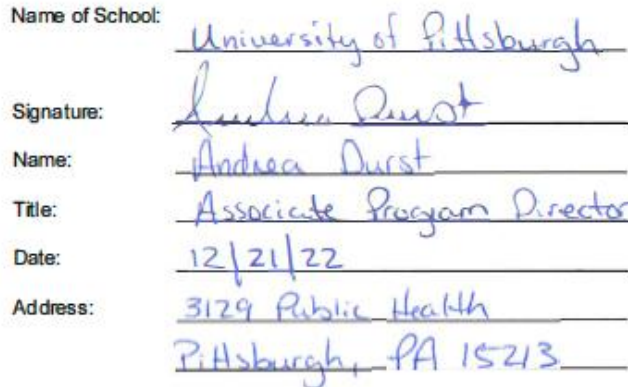 Name of School: University of Pittsburgh
Signature: Andrea Durst
Name: Andrea Durst
Title: Associate Program Director
Date: 12/21/22
Address: 3129 Public Health
Pittsburgh, PA 15213